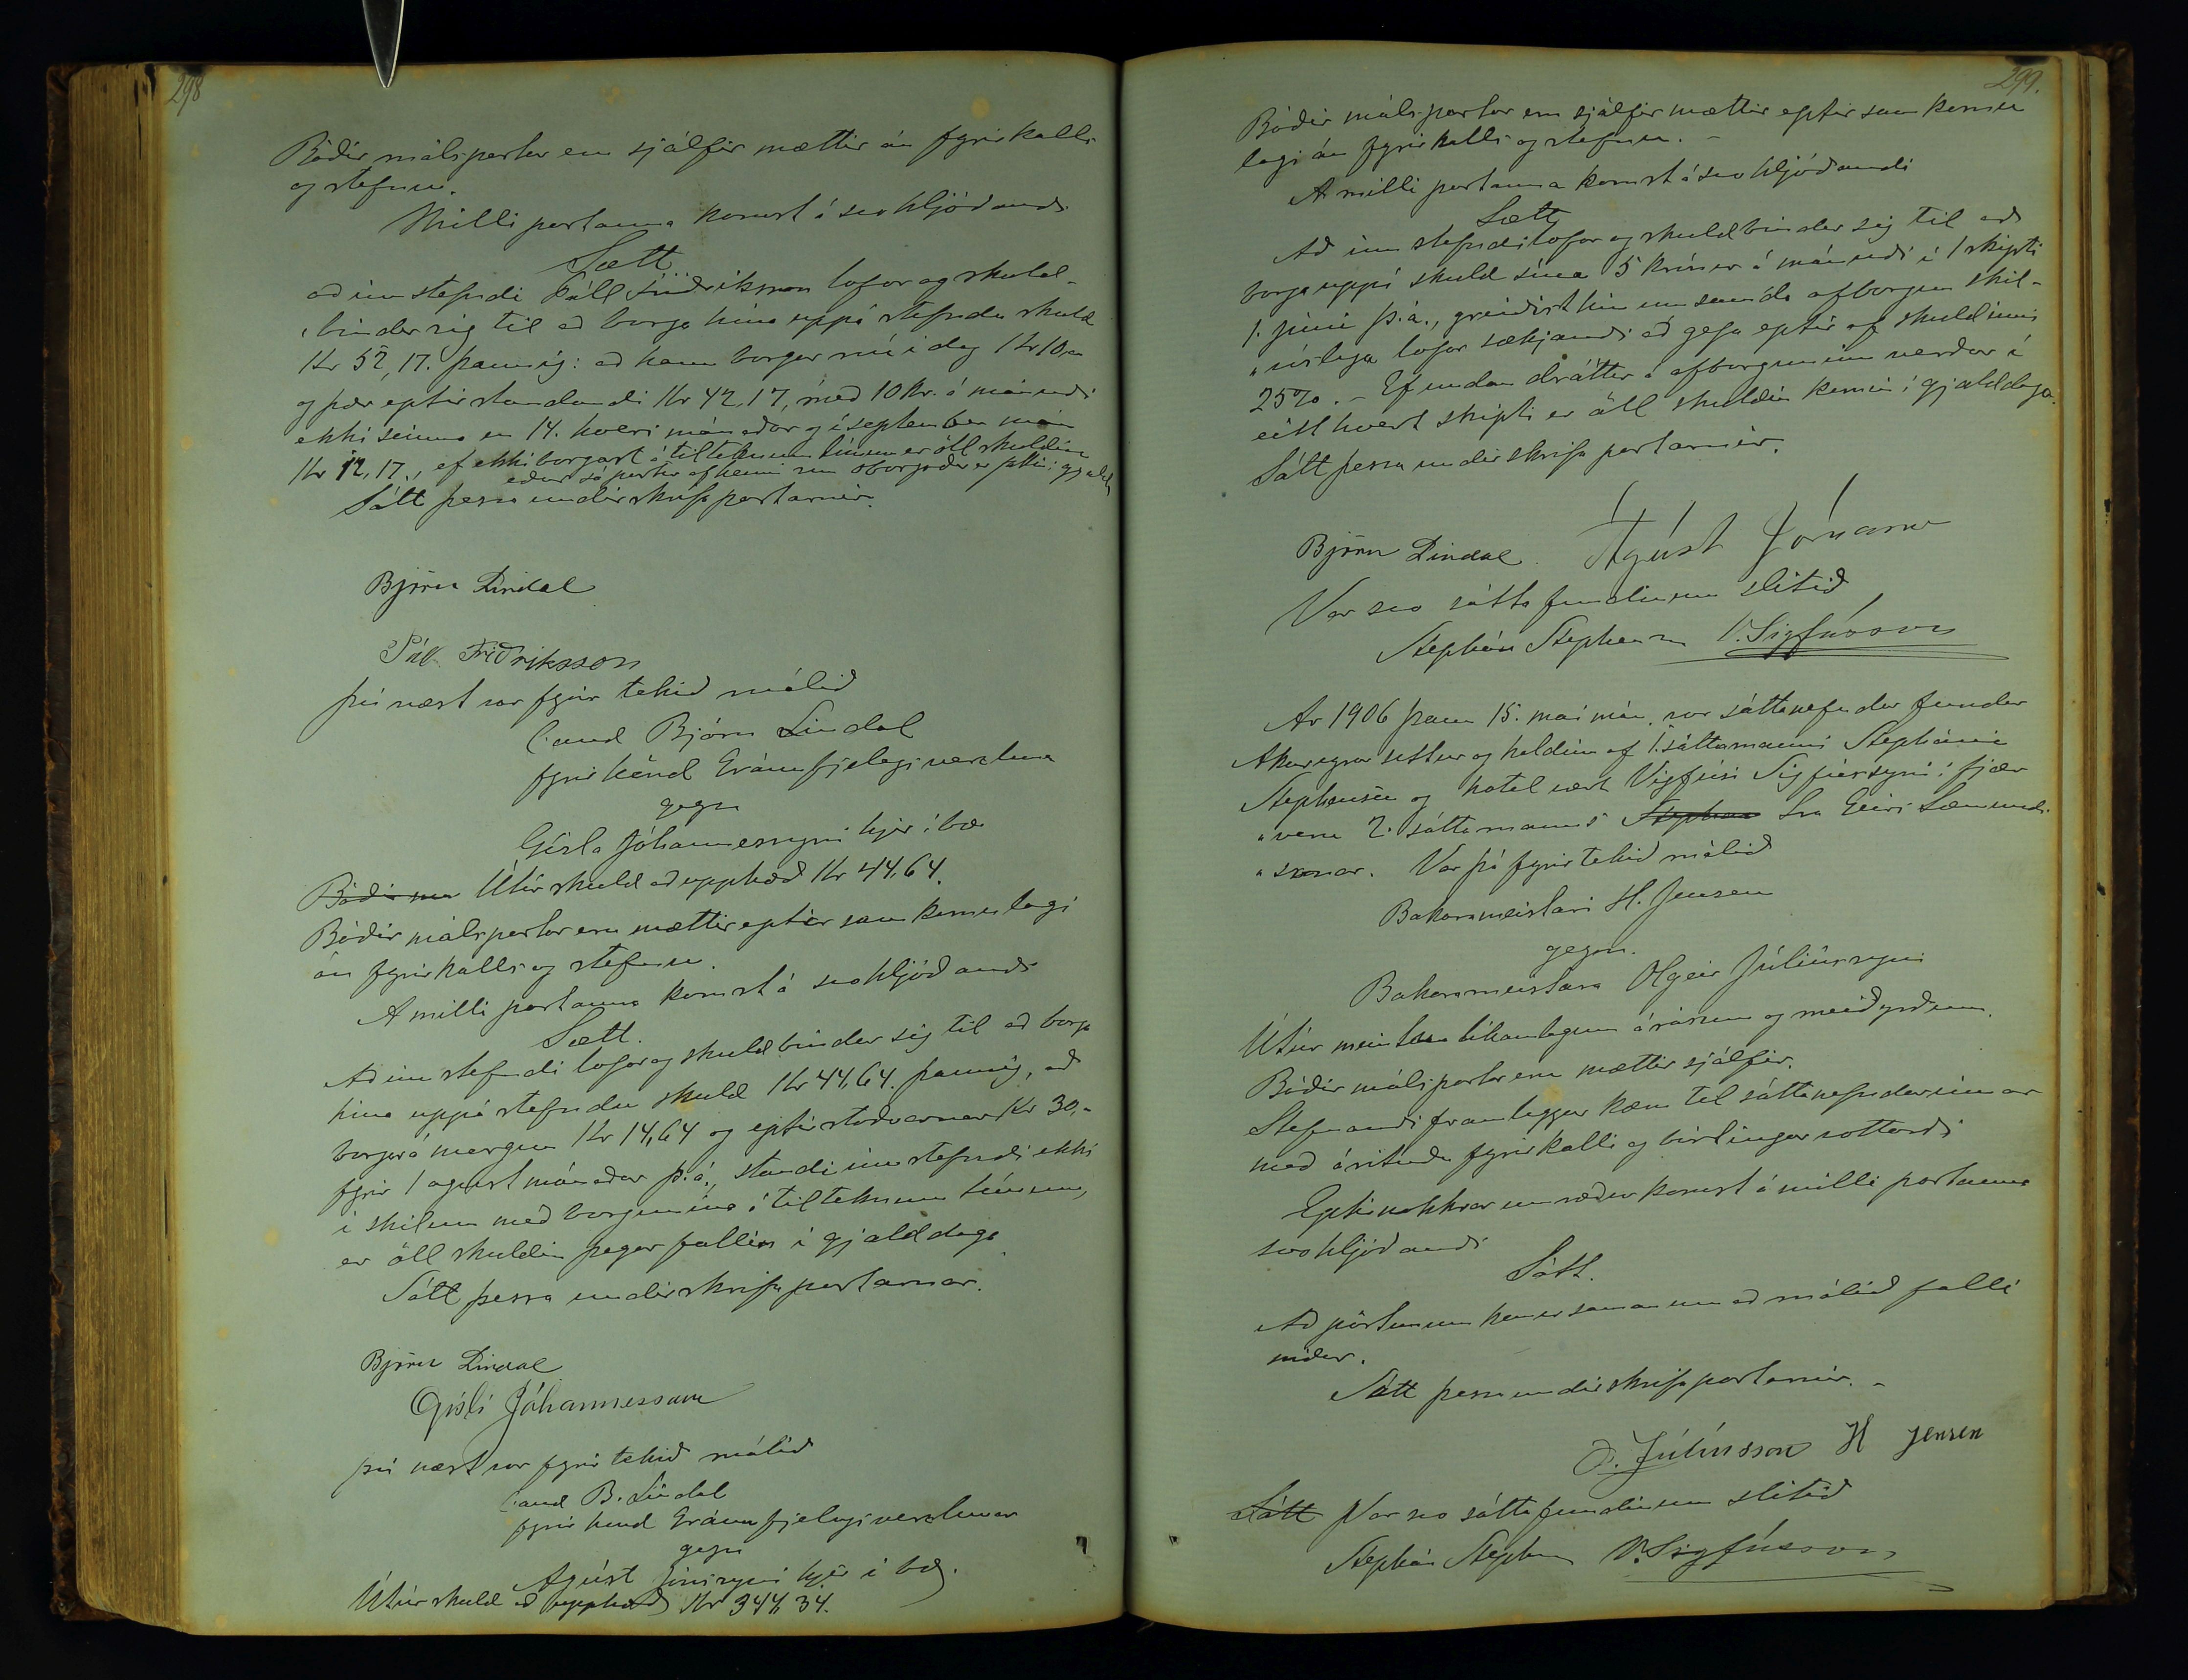 298
Báðir málspartar eru sjálfir mættir án fyrirkalls
og stefnu.
Milli partanna komst á svohljóðandi
Sætt
að inn stefndi Páll Friðriksson lofar og skuld-
bindur sig til að borga hina uppá stefndu skuld
Kr 52,17. þannig: að hann borgar nú í dag Kr 10,00
og þær eptirstandandi Kr 42,17, með 10 Kr. á mánuði
ekki seinna en 14. hvers mánaðar og í september mán
Kr 12,17., ef ekki borgast á tilteknum tímum er öll skuldin
eður sá partur af henni sem óborgaður er fallin í gjaldd
Sátt þessa undirskrifa partarnir.
Björn Líndal
Páll Friðriksson
Því næst var fyrir tekið málið
Cand Björn Líndal
fyrir hönd Gránufjelagsverzlunar
gegn
Gísla Jóhannessyni hjer í bæ
Báðir ma Útúr skuld að upphæð Kr 44,64.
Báðir málspartar eru mættir eptir samkomulagi
án fyrirkalls og stefnu.
A milli partanna komst á svohljóðandi
Sætt.
Að inn stefndi lofar og skuldbindur sig til að borga
hina uppá stefndu skuld Kr 44,64. þannig, að
borga á morgun Kr 14,64 og eptirstöðvarnar Kr 30,-
fyrir 1 agust mánaðar þ.á., standi inn stefndi ekki
í skilum með borgunina á tilteknum tímum,
er öll skuldin þegar fallin í gjalddaga
Sátt þessa undirskrifa partarnar.
Björn Líndal
Gísli Jóhannesson
Því næst var fyrir tekið málið
Cand B. Líndal
fyrir hönd Gránufjelagsverzlunar
gegn
Agúst Jónssyni hjer í bæ.
Útúr skuld að upphæð Kr 344,34.
299.
Báðir málspartar eru sjálfir mættir eptir samkomu
lagi án fyrirkalls og stefnu. -
A milli partanna komst á svohljóðandi
Sætt
Að inn stefndi lofar og skuldbindur sig til að
borga uppí skuld sína 5 krónur á mánuði í 1 skipti
1. júní þ.á., greiðist hin umsamda afborgun skil-
"víslega lofar sækjandi að gefa eptir af skuldinni
25%. - Ef undandráttur á afborguninni verður í
eitthvert skipti er öll skuldin komin í gjalddaga.
Sátt þessa undirskrifa partarnir.
Björn Líndal. Ágúst Jónsson
Var svo sáttafundinum slitið
Stephán Stephensen V. Sigfússon
Ar 1906 þann 15. maí mán. var sáttanefndar fundur
Akureyrar settur og haldinn af 1. sáttamanni Stepháni
Stephensen og hotelvert Vigfúsi Sigfússyni í fjær
"veru 2. sáttamanns Stephan Sra Geirs Sæmunds-
"sonar. Var þá fyrir tekið málið
Bakarameistari H. Jensen
gegn.
Bakarameistara Olgeir Júlíussyni
Útúr meintum líkamlegum árásum og meiðyrðum.
Báðir málspartar eru mættir sjálfir.
Stefnandi framleggur kæru til sáttanefndarinnar
með árituðu fyrirkalli og birtingarvottorði
Eptir nokkrar umræður komst á milli partanna
svohljóðandi
Sátt.
Að pörtunum kemur saman um að málið falli
niður.
Sátt þessa undirskrifa partarnir. -
O. Júlíusson H Jensen
Sátt Var svo sáttafundinum slitið
Stephán Stephensen V. Sigfússon